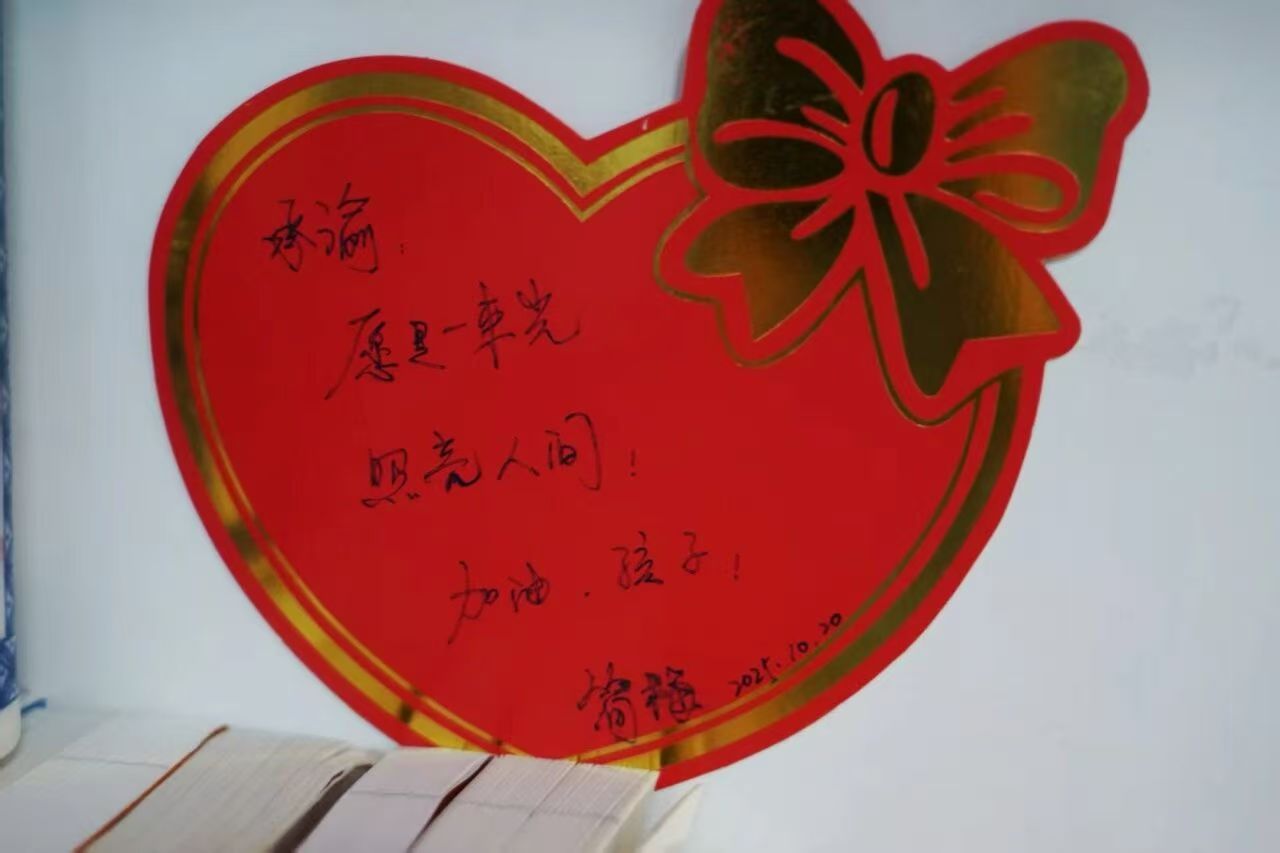 承谕：
愿是一束光
照亮人间！
加油．孩子！
简梅 2025.10.20